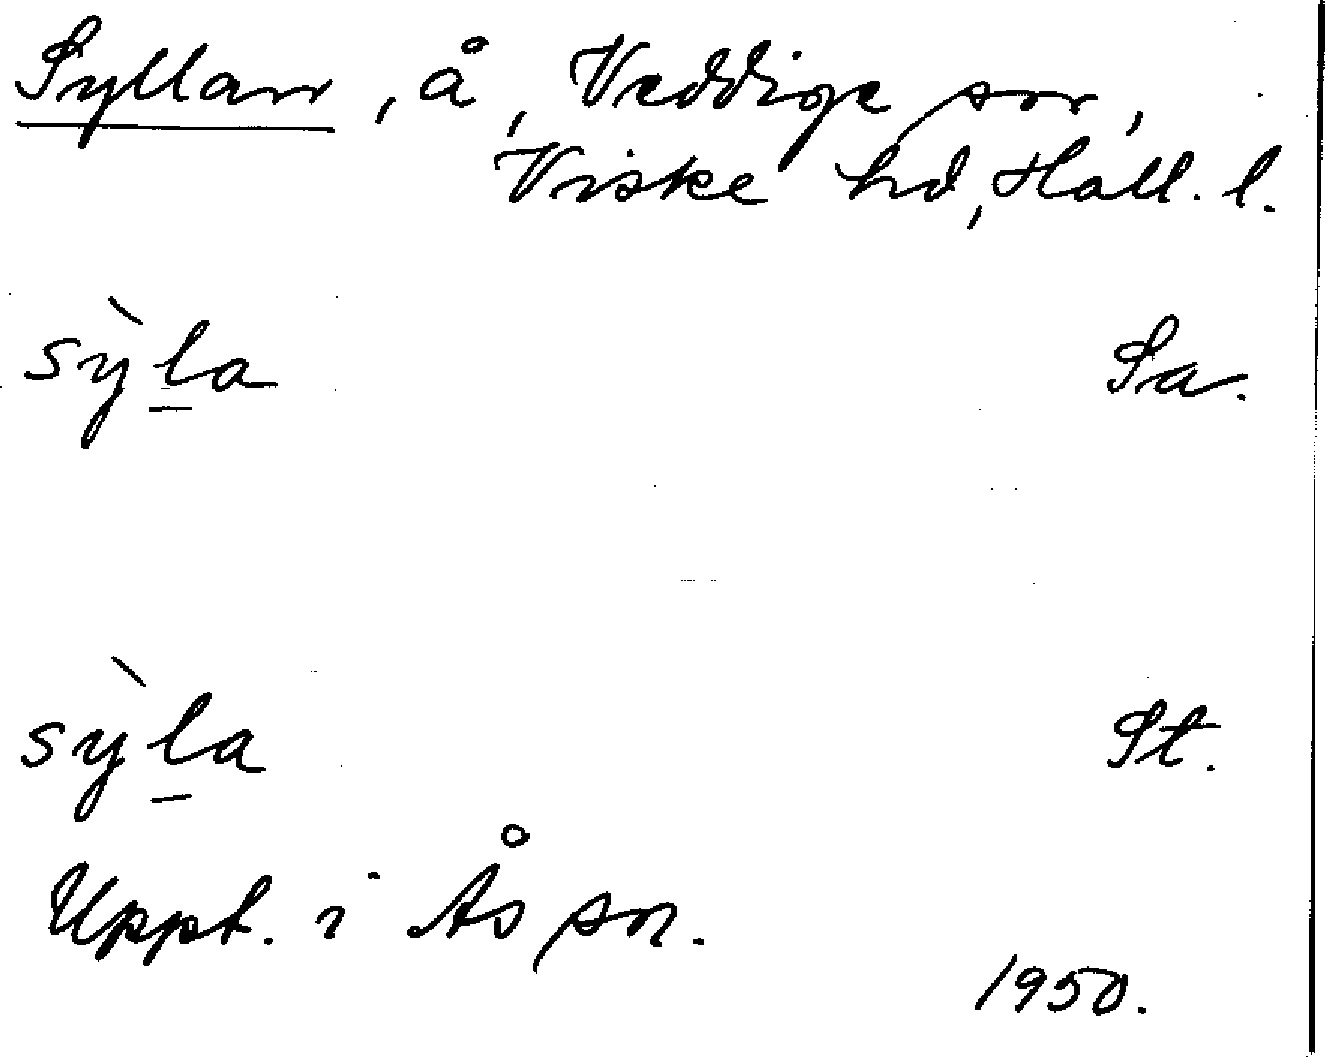 Syllan, å, Veddige sn,
Viske hd, Hall. l.
sỳla Sa.
sỳla St.
Uppt. i Ås sn.
1950.